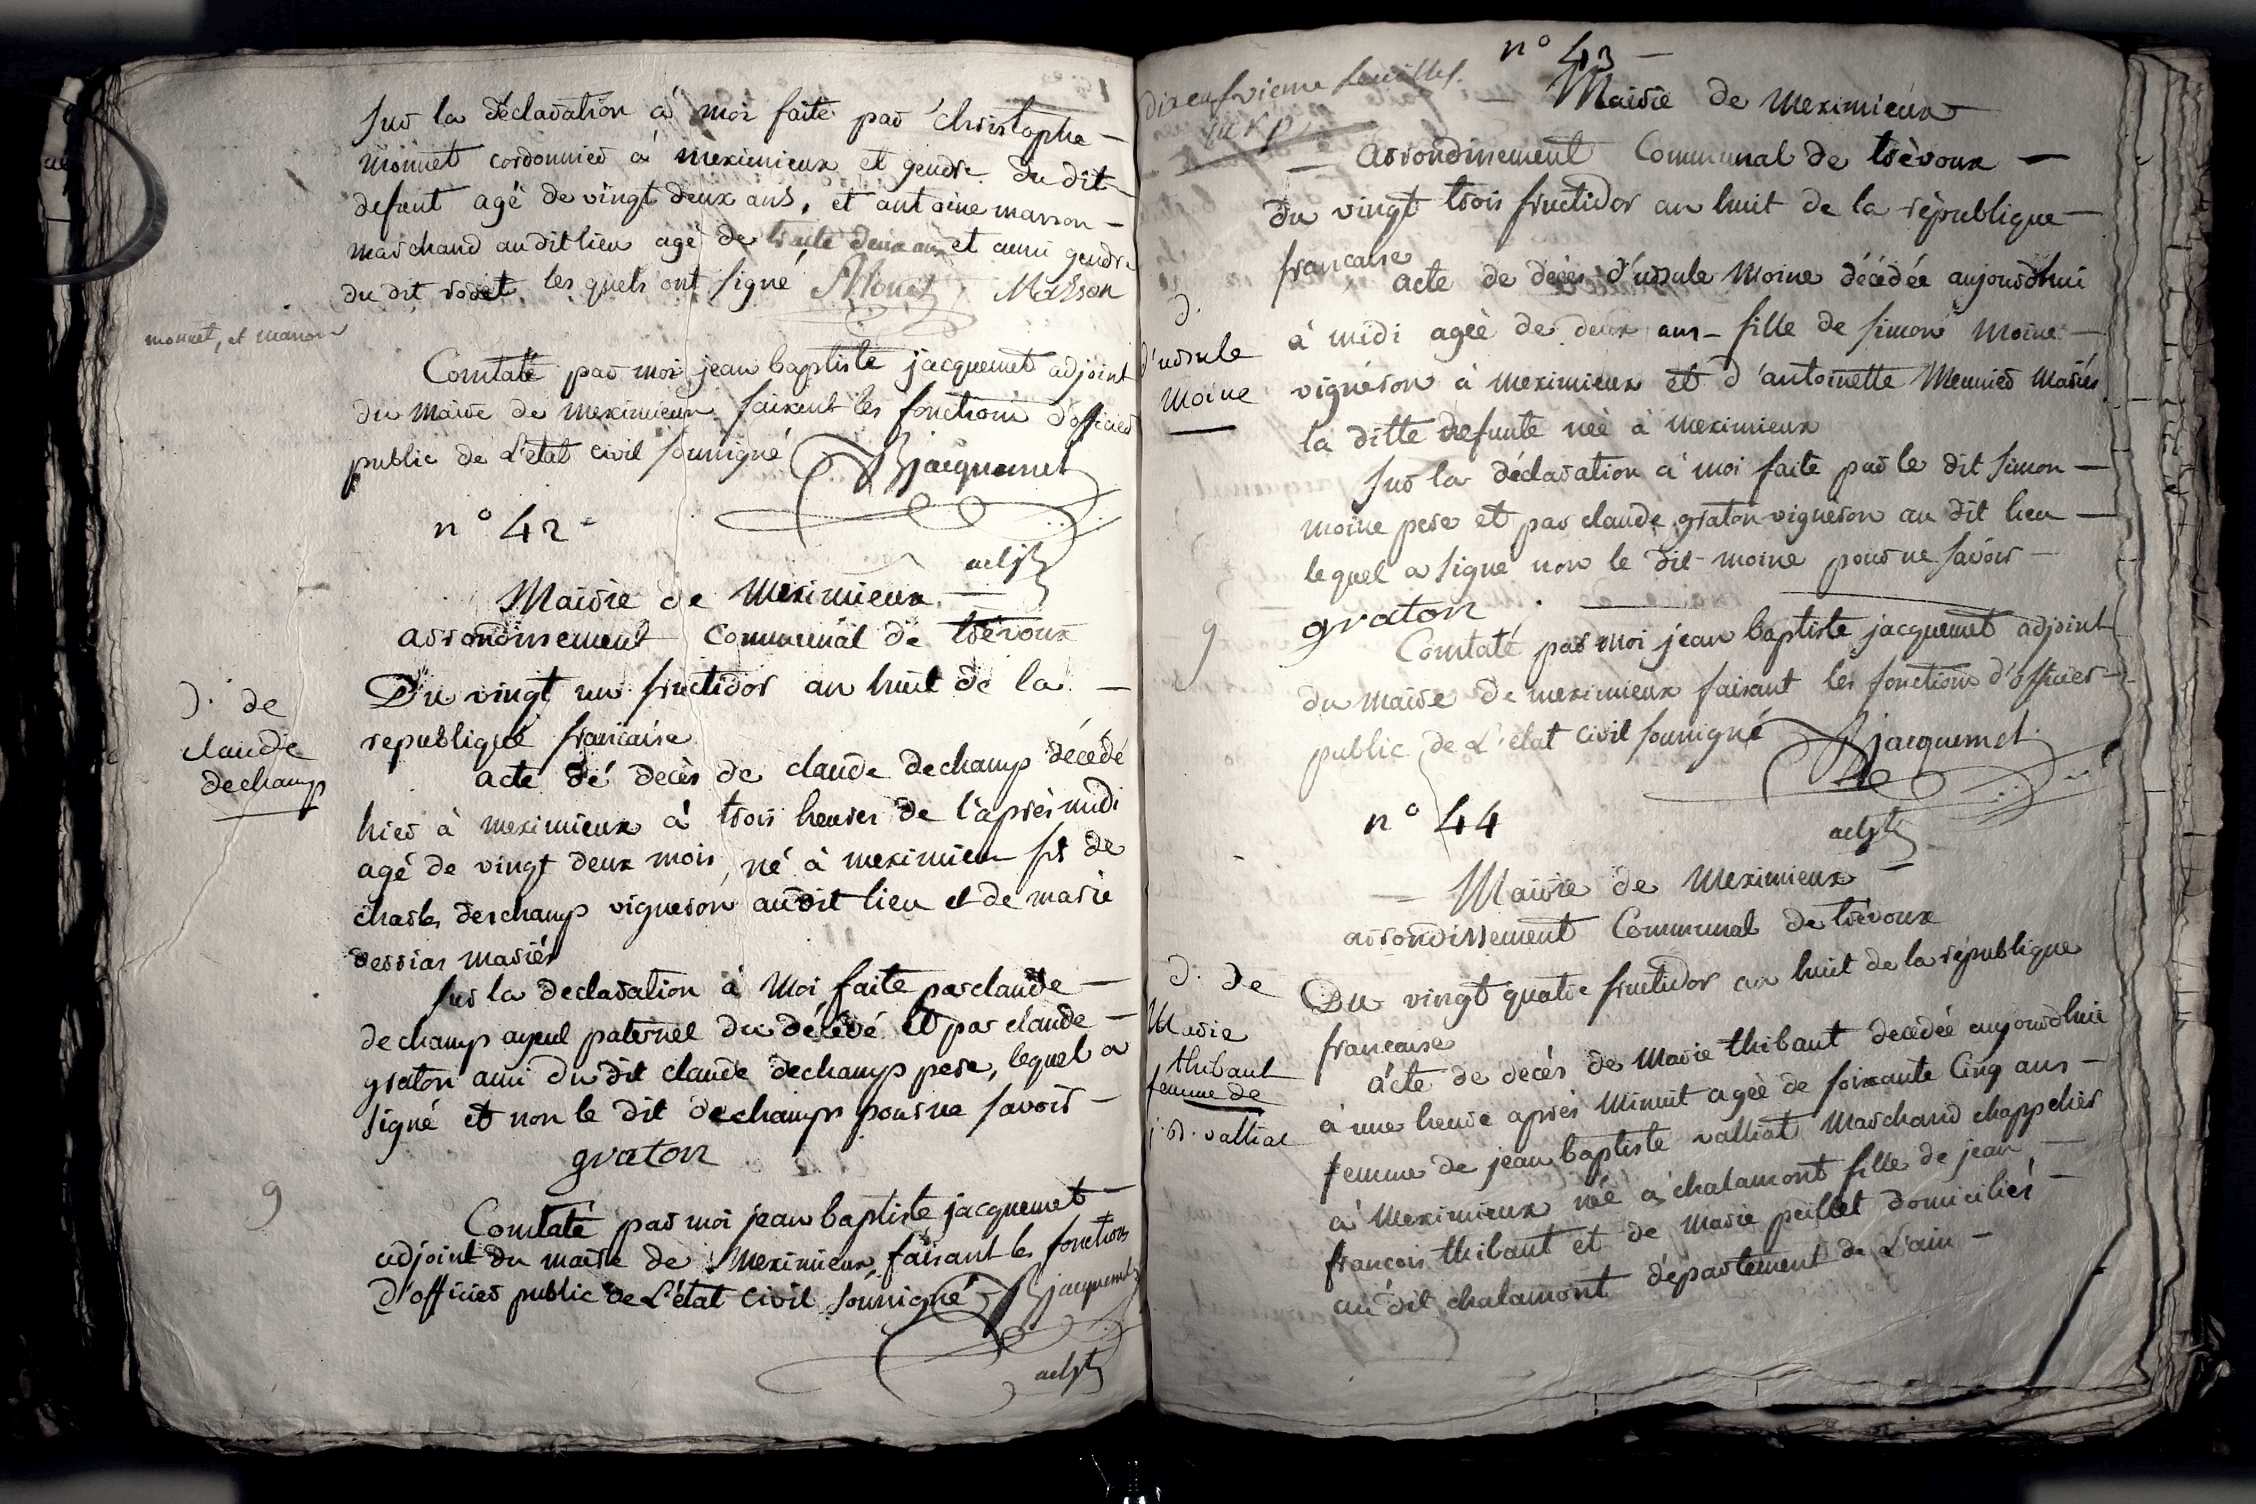 sur la déclaration a moi faite par christophe
monnet cordonnier a meximieux et gendre du dit
defunt agé de vingt deux ans, et antoine masson
marchand au dit lieu agé de trente deux ans et aussi gendre
du dit les quels ont signé Monet Masson
monnet, et masson
Constaté par moi jean baptiste jacquemet adjoint
du maire de meximieux faisant les fonctions d'officier
public de L'état civil soussigné Bjacquemet
adjt
n° 42
Mairie de Meximieux
arrondissement Communal de trévoux
Du vingt un fructidor an huit de la
republique francaise
D. de
claude
dechamp
acte de decès de claude dechamp décédé
hier à meximieux à trois heures de l'après midi
agé de vingt deux mois, né à meximieux fils de
charles deschamp vigneron audit lieu et de marie
dessias mariés
sur la declaration à Moi faite par claude
dechamp ayeul paternel du décédé et par claude
graton ami du dit claude dechamp pere, lequel a
signé et non le dit dechamps pour ne savoir
graton
9
Constaté par moi jean baptiste jacquemet
adjoint du maire de Meximieux, faisant les fonctions
d'officier public de L'état civil soussigné Bjacquemet
adjt
dixneufvieme feuillet.
n° 43
Mairie de Meximieux
arrondissement Communal de trévoux
du vingt trois fructidor an huit de la république
francaise
D.
d'ursule
Moine
acte de décès d'ursule Moine décédée aujourdhui
à midi agéé de deux ans fille de simon Moine
vigneron à meximieux et d'antoinette Meunier Mariés
la ditte defunte née à meximieux
sur la déclaration a moi faite par le dit simon
moine pere et par claude graton vigneron au dit lieu
lequel a signé non le dit moine pour ne savoir
graton
9
Constaté par moi jean baptiste jacquemet adjoint
du maire de meximieux faisant les fonctions d'officier
public de L'état civil soussigné Bjacquemet
adjt
n° 44
Mairie de Meximieux
arrondissement Communal de trévoux
Du vingt quatre fructidor an huit de la république
francaise
D. de
Marie
thibaut
femme de
j. B. valliat
acte de decés de Marie thibaut decedée aujourdhui
à une heure après Minuit agéé de soixante Cinq ans
femme de jean baptiste valliat Marchand chappelier
a Meximieux née a chalamont fille de jean
francois thibaut et de Marie peillet domiciliés
au dit chalamont département de L'ain